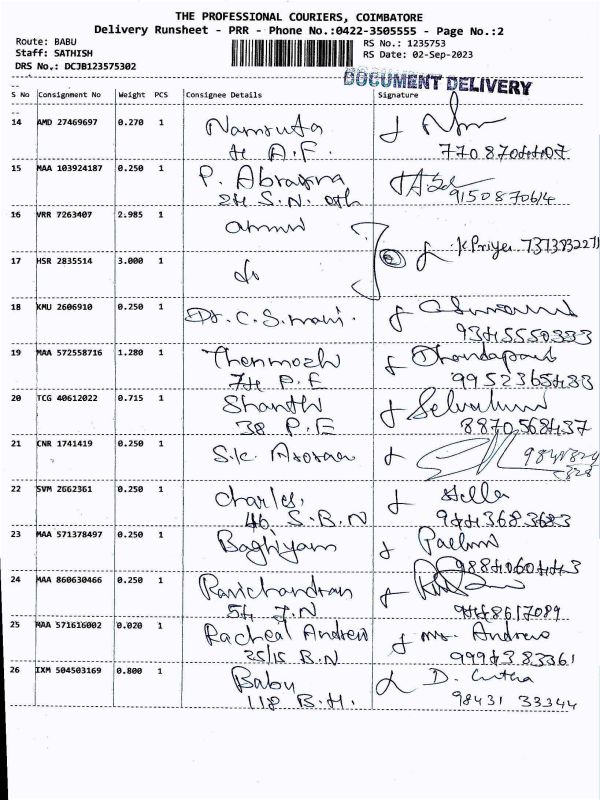 THE PROFESSIONAL COURIERS, COIMBATORE
Delivery Runsheet - PRR - Phone No.:0422-3505555 - Page No.:2
Route: BABU RS No.: 1235753
Staff: SATHISH RS Date: 02-Sep-2023
DRS No.: DCJB123575302
DOCUMENT DELIVERY
S No Consignment No Weight PCS Consignee Details Signature
14 AMD 27469697 0.270 1
A.F.
15 MAA 103924187 0.250 1 P.
S.N. 9150870614
16 VRR 7263407 2.985 1
K Priya 7373832271
17 HSR 2835514 3.000 1 do
18 KMU 2606910 0.250 1 Dr. C. S.
9345550333
19 MAA 572558716 1.280 1 Thenmozhi
74 P.E 9952365433
20 TCG 40612022 0.715 1 Shanthi
38 P.E 8870568437
21 CNR 1741419 0.250 1 S.K.
22 SVM 2662361 0.250 1 Charles, Stella
46, S.B.N 9443683683
23 MAA 571378497 0.250 1 Baghiyam
24 MAA 860630466 0.250 1 Ravichandran
54 J.N 9448617089
25 MAA 571616002 0.020 1 Racheal Andrew Mr. Andrew
25/15 B.N 9994383361
26 IXM 504503169 0.800 1 Babu D.
118 B.H. 98431 33344